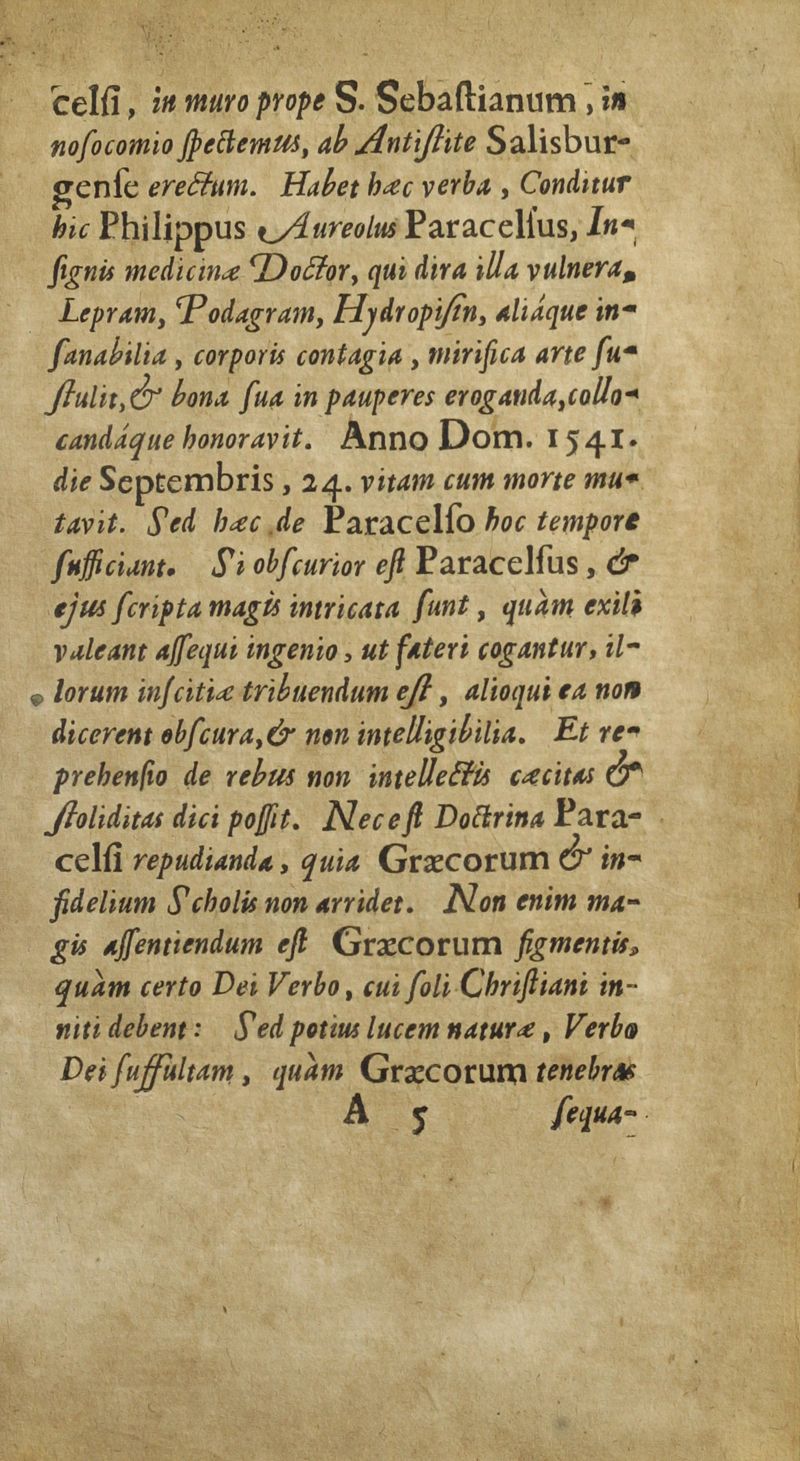 celſi, in muro prope S. Sebaſtianum, in
noſocomio ſpectemus, ab Antiſtite Salisbur-
genſe erectum. Habet hæc verba, Conditur
hic Philippus Aureolus Paracelſus, In-
ſignis medicinæ Doctor, qui dira illa vulnera,
Lepram, Podagram, Hydropiſin, aliáque in-
ſanabilia, corporis contagia, mirifica arte ſu-
ſtulit, & bona ſua in pauperes eroganda, collo-
candáque honoravit. Anno Dom. 1541.
die Septembris, 24. vitam cum morte mu-
tavit. Sed hæc de Paracelſo hoc tempore
ſufficiant. Si obſcurior eſt Paracelſus, &
ejus ſcripta magis intricata ſunt, quàm exili
valeant aſſequi ingenio, ut fateri cogantur, il-
lorum inſcitiæ tribuendum eſt, alioqui ea non
dicerent obſcura, & non intelligibilia. Et re-
prehenſio de rebus non intellectis cæcitas &
ſtoliditas dici poſſit. Nec eſt Doctrina Para-
celſi repudianda, quia Græcorum & in-
fidelium Scholis non arridet. Non enim ma-
gis aſſentiendum eſt Græcorum figmentis,
quàm certo Dei Verbo, cui ſoli Chriſtiani in-
niti debent: Sed potius lucem naturæ, Verbo
Dei ſuffultam, quàm Græcorum tenebras
A 5 ſequa-